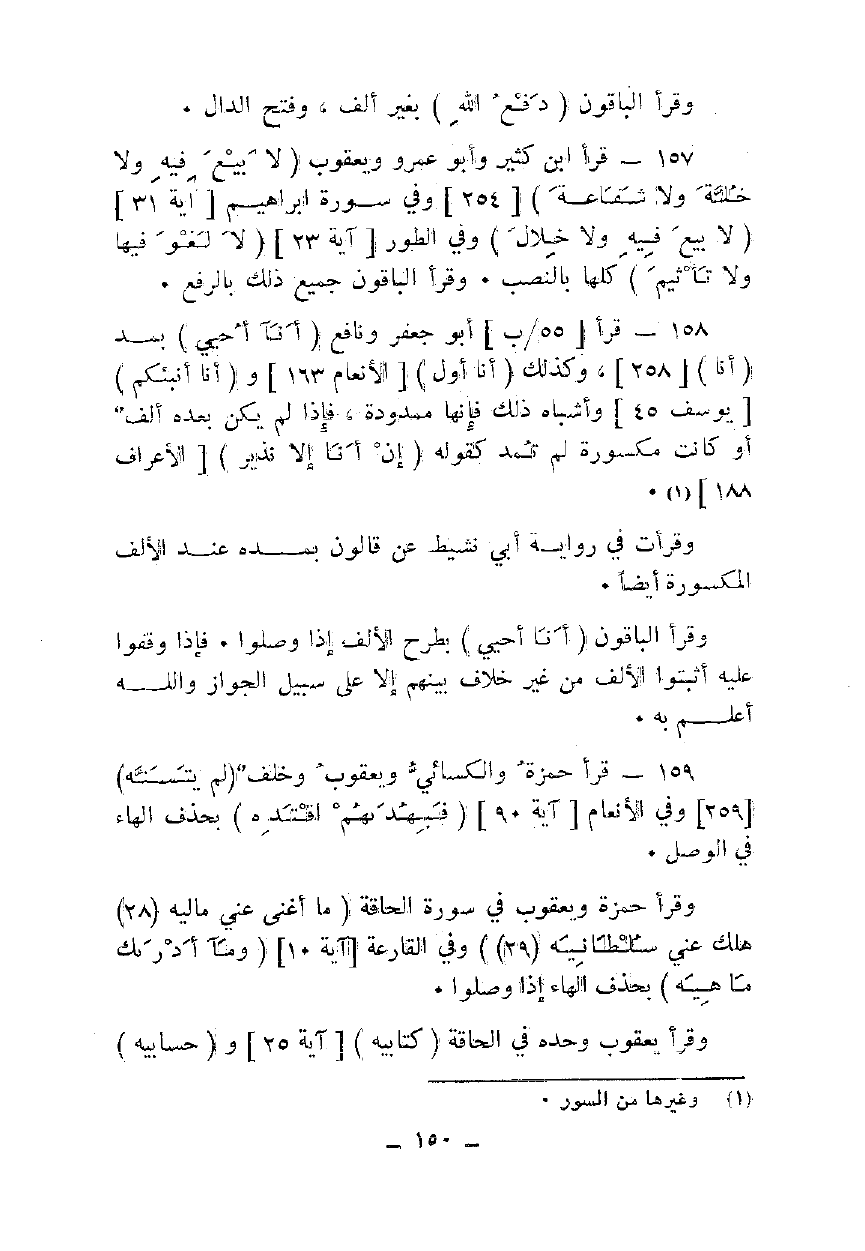 وقرأ الباقون ( دَفْعُ اللهِ ) بغير ألف ، وفتح الدال ٠
١٥٧ — قرأ ابن كثير وأبو عمرو ويعقوب ( لا بَيْعَ فِيهِ ولا
خُلَّةَ ولا شَفَاعَةَ ) [ ٢٥٤ ] وفي ســورة ابراهيـم [ آية ٣١ ]
( لا بيعَ فِيهِ ولا خِلالَ ) وفي الطور [ آية ٢٣ ] ( لا لَغْوَ فيها
ولا تَأْثيمَ ) كلها بالنصب ٠ وقرأ الباقون جميع ذلك بالرفع ٠
١٥٨ — قرأ [ ٥٥/ب ] أبو جعفر ونافع ( أَنَآ أُحيي ) بمــد
( أنا ) [ ٢٥٨ ] ، وكذلك ( أنا أول ) [ الأنعام ١٦٣ ] و ( أنا أنبئكم )
[ يوسف ٤٥ ] وأشباه ذلك فإنها ممدودة ، فإذا لم يكن بعده ألفٌ
أو كانت مكسورة لم تُمد كقوله ( إنْ أَنَا إلا نذير ) [ الأعراف
١٨٨ ] (١) ٠
وقرأت في روايـة أبي نشيط عن قالون بمـــده عنــد الألف
المكسورة أيضاً ٠
وقرأ الباقون ( أَنَا أحيي ) بطرح الألف إذا وصلوا ٠ فإذا وقفوا
عليه أثبتوا الألف من غير خلاف بينهم إلا على سبيل الجواز واللــه
أعلــم به ٠
١٥٩ — قرأ حمزةُ والكسائيُّ ويعقوبُ وخلفٌ (لم يَتَسَنَّه)
[٢٥٩] وفي الأنعام [ آية ٩٠ ] ( فَبِهُدَىهُمْ اقْتَدِه ) بحذف الهاء
في الوصل ٠
وقرأ حمزة ويعقوب في سورة الحاقة ( ما أغنى عني ماليه (٢٨)
هلك عني سُلْطَانِيَه (٢٩) ) وفي القارعة [آية ١٠] ( ومَآ أَدْرَىٰك
مَا هِيَه ) بحذف الهاء إذا وصلوا ٠
وقرأ يعقوب وحده في الحاقة ( كتابيه ) [ آية ٢٥ ] و ( حسابيه )
(١) وغيرها من السور ٠
— ١٥٠ —